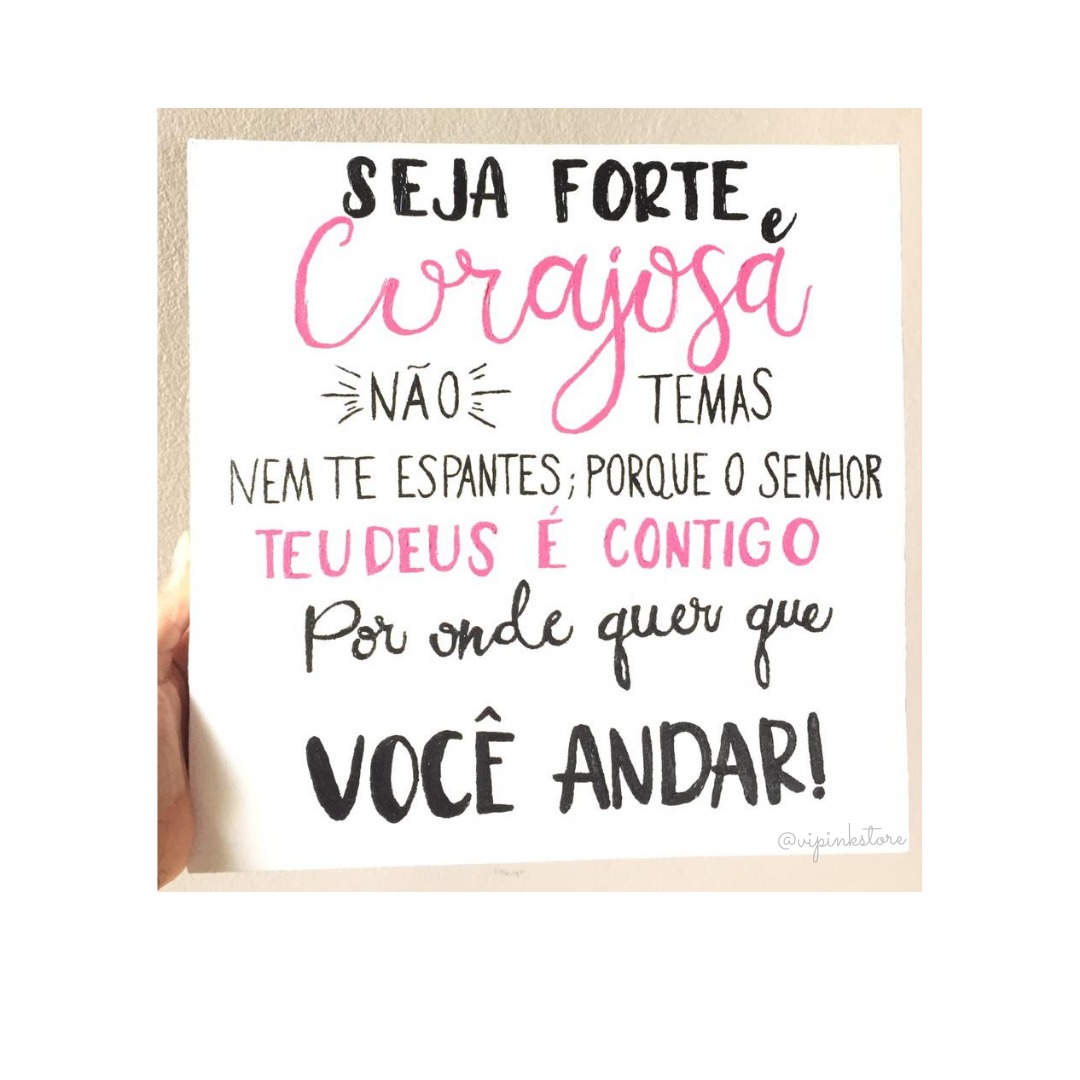 SEJA FORTE e
Corajosa
NÃO TEMAS
NEM TE ESPANTES; PORQUE O SENHOR
TEU DEUS É CONTIGO
Por onde quer que
VOCÊ ANDAR!
@vipinkstore